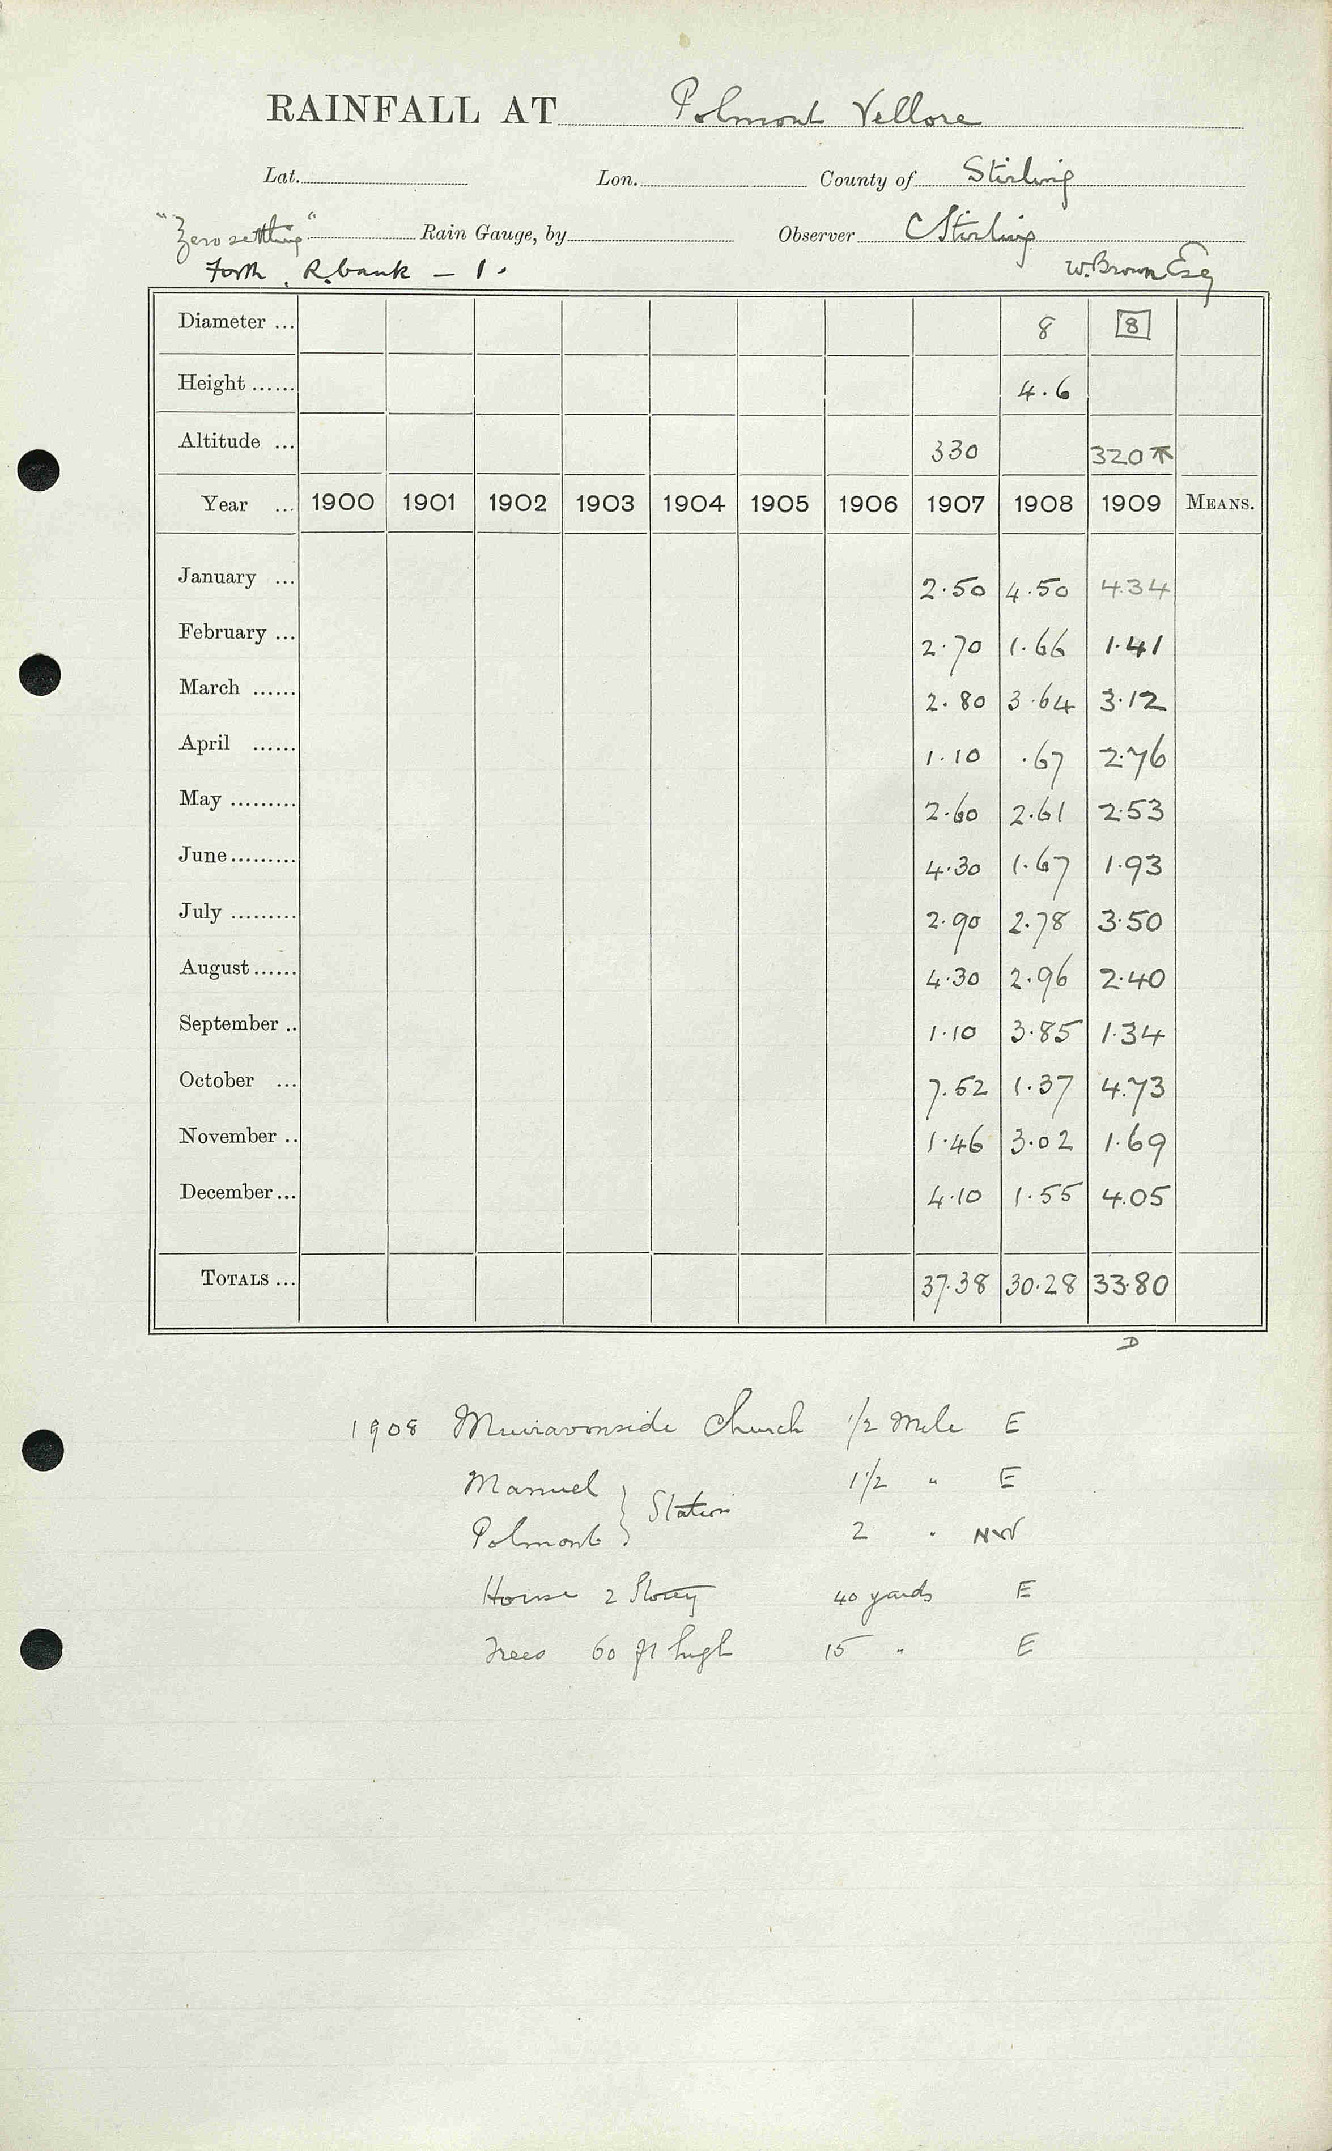 RAINFALL AT Polmont Vellore
Lat. Lon. County of Stirling
"Zero setting" Rain Gauge, by Observer C Stirling
Forth R. bank — 1. W. Brown Esq
Diameter ... 8 8
Height ...... 4.6
Altitude ... 330 320
Year ... 1900 1901 1902 1903 1904 1905 1906 1907 1908 1909 MEANS.
January ... 2.50 4.50 4.34
February ... 2.70 1.66 1.41
March ...... 2.80 3.64 3.12
April ...... 1.10 .67 2.76
May ......... 2.60 2.61 2.53
June......... 4.30 1.67 1.93
July ......... 2.90 2.78 3.50
August...... 4.30 2.96 2.40
September .. 1.10 3.85 1.34
October ... 7.52 1.37 4.73
November .. 1.46 3.02 1.69
December... 4.10 1.55 4.05
TOTALS ... 37.38 30.28 33.80
D
1908 Muiravonside Church 1/2 Mile E
Manuel } Station 1 1/2 " E
Polmont 2 " NW
House 2 Storey 40 yards E
Trees 60 ft high 15 " E